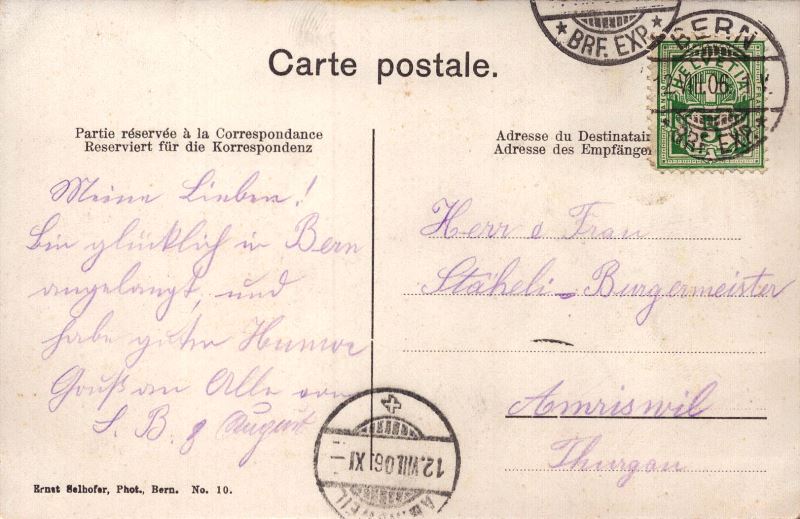 BRF. EXP.
BERN
HELVETIA
II.06
5
BRF. EXP.
Carte postale.
Partie réservée à la Correspondance
Reserviert für die Korrespondenz
Adresse du Destinatair
Adresse des Empfänger
Meine Lieben!
bin glücklich in Bern
angelangt, und
habe guten Humor
Gruß an Alle von
S. B. 8 August
Herr & Frau
Stäheli-Burgermeister
Amriswil
Thurgau
12.VIII.06. XI
Ernst Selhofer, Phot., Bern. No. 10.